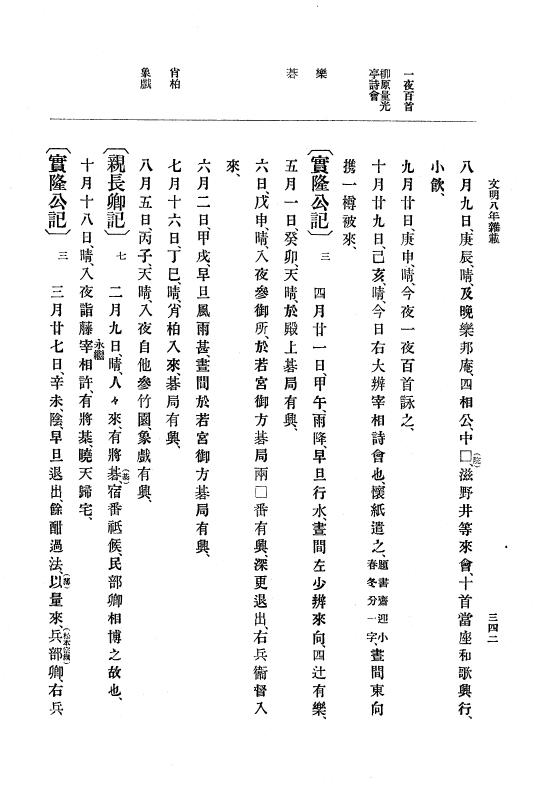 文明八年雜載
三四二
八月九日、庚辰、晴、及晚樂邦庵、四相公、中□、滋野井等來會、十首當座和歌興行、
(院)
小飮、
一夜百首
九月廿日、庚申、晴、今夜一夜百首詠之、
柳原量光
亭詩會
十月廿九日、己亥、晴、今日右大辨宰相詩會也、懷紙遣之、題書齋迎小春、冬分一字、晝間東向
携一樽被來、
樂
〔實隆公記〕 三 四月廿一日、甲午、雨降、早旦行水、晝間左少辨來向、四辻有樂、
碁
五月一日、癸卯、天晴、於殿上碁局有興、
六日、戊申、晴、入夜參御所、於若宮御方碁局兩□番有興、深更退出、右兵衞督入
來、
六月二日、甲戌、早旦風雨甚、晝間於若宮御方碁局有興、
肖柏
七月十六日、丁巳、晴、肖柏入來碁局有興、
象戲
八月五日、丙子、天晴、入夜自他參竹園象戲有興、
〔親長卿記〕 七 二月九日、晴、人々來、有將碁、宿番祗候、民部卿相博之故也、
(棊)
十月十八日、晴、入夜詣藤宰相許、有將棊、曉天歸宅、
永繼
〔實隆公記〕 三 三月廿七日、辛未、陰、早旦退出、餘酣過法、以量來、兵部卿、右兵
(薄)
(松木宗綱)